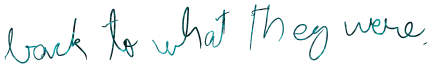 back to what they were.